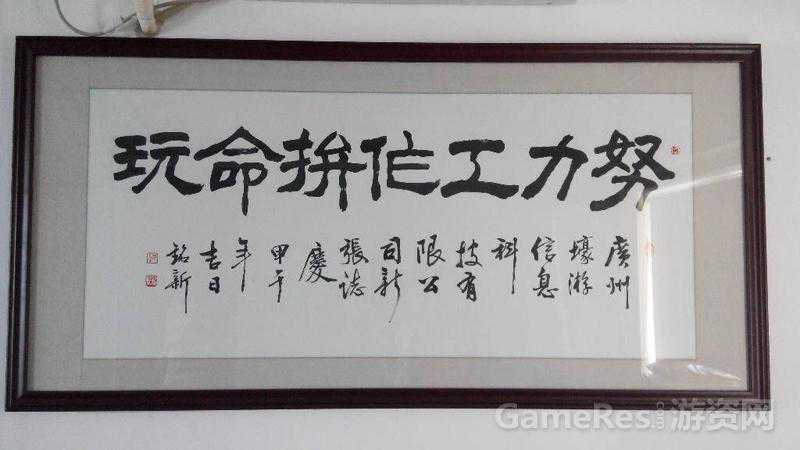 努力工作拼命玩
廣州
壕游
信息
科
技有
限公
司新
張誌
慶
甲午
年
吉日
銘新
GameRes.com游资网